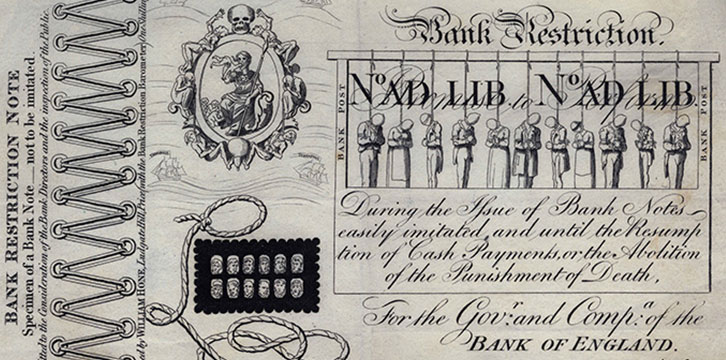 BANK RESTRICTION NOTE
Specimen of a Bank Note_not to be imitated.
to the Consideration of the Bank Directors and the inspection of the Public.
by WILLIAM HONE, Ludgate Hill, Price with the Bank Restriction Barometer,
Bank Restriction.
BANK POST
Nº AD LIB. to Nº AD LIB
BANK POST
During the Issue of Bank Notes
easily imitated, and until the Resump
tion of Cash Payments, or the Abolition
of the Punishment of Death,
For the Govr. and Compa. of the
BANK OF ENGLAND.